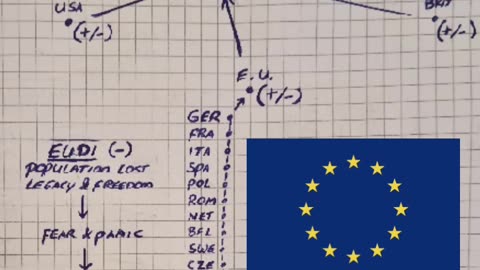 USA
(+/-)
BRIT
(+/-)
E.U.
(+/-)
GER
FRA
ITA
SPA
POL
ROM
NET
BEL
SWE
CZE
EUDI (-)
POPULATION LOST
LEGACY & FREEDOM
FEAR & PANIC